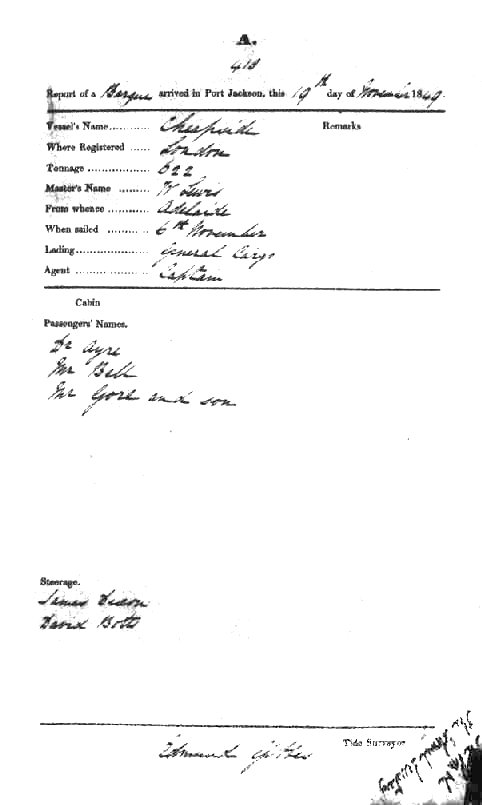 A.
Report of a Barque arrived in Port Jackson, this 19th day of November 1849.
Vessel's Name........... Cheapside Remarks
Where Registered ...... London
Tonnage .................. 622
Master's Name ......... W Lewis
From whence ............ Adelaide
When sailed ............ 6th November
Lading..................... General Cargo
Agent ..................... Captain
Cabin
Passengers' Names.
Dr Ayre
Mr Bell
Mr Gore and son
Steerage.
James Dixon
David Botts
Edmund
Tide Surveyor